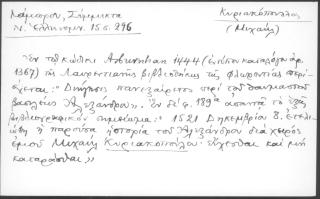 Λάμπρου, Σύμμικτα Κυριακόπουλος
Ν. Ἑλληνομν. 15 σ. 296 (Μιχαήλ)
Ἐν τῷ κώδικι Ashburnham 1444 (ἐντύπου καταλόγου ἀρ.
1367) τῆς Λαυρεντιανῆς βιβλιοθήκης τῆς Φλωρεντίας περι-
έχεται: "Διήγησις πανεξαίρετος περὶ τοῦ θαυμαστοῦ
βασιλέως Ἀλεξάνδρου". Ἐν δὲ φ. 189α ἀπαντᾷ τὸ ἑξῆς
βιβλιογραφικὸν σημείωμα: "1521 Δηκεμβρίου 8. ἐτελι-
ώθη ἡ παροῦσα ἱστορία τοῦ Ἀλεξάνδρου διὰ χειρὸς
ἐμοῦ Μιχαὴλ Κυριακοπούλου· εὔχεσθαι καὶ μὴ
καταρᾶσθαι."